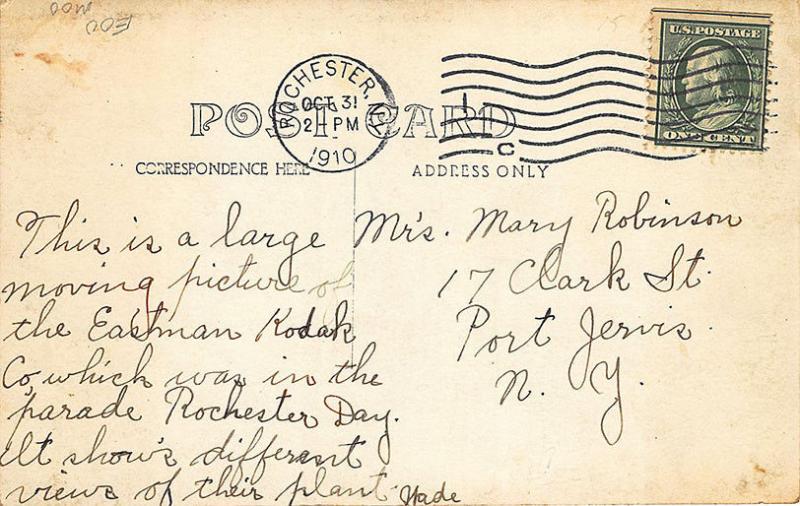 ROCHESTER, N.Y.
OCT 31
2 PM
1910
U.S. POSTAGE
ONE CENT
C
POST CARD
CORRESPONDENCE HERE
ADDRESS ONLY
This is a large
moving picture of
the Eastman Kodak
Co, which was in the
parade Rochester Day.
It show's different
views of their plant. Wade
Mr's. Mary Robinson
17 Clark St.
Port Jervis.
N. Y.